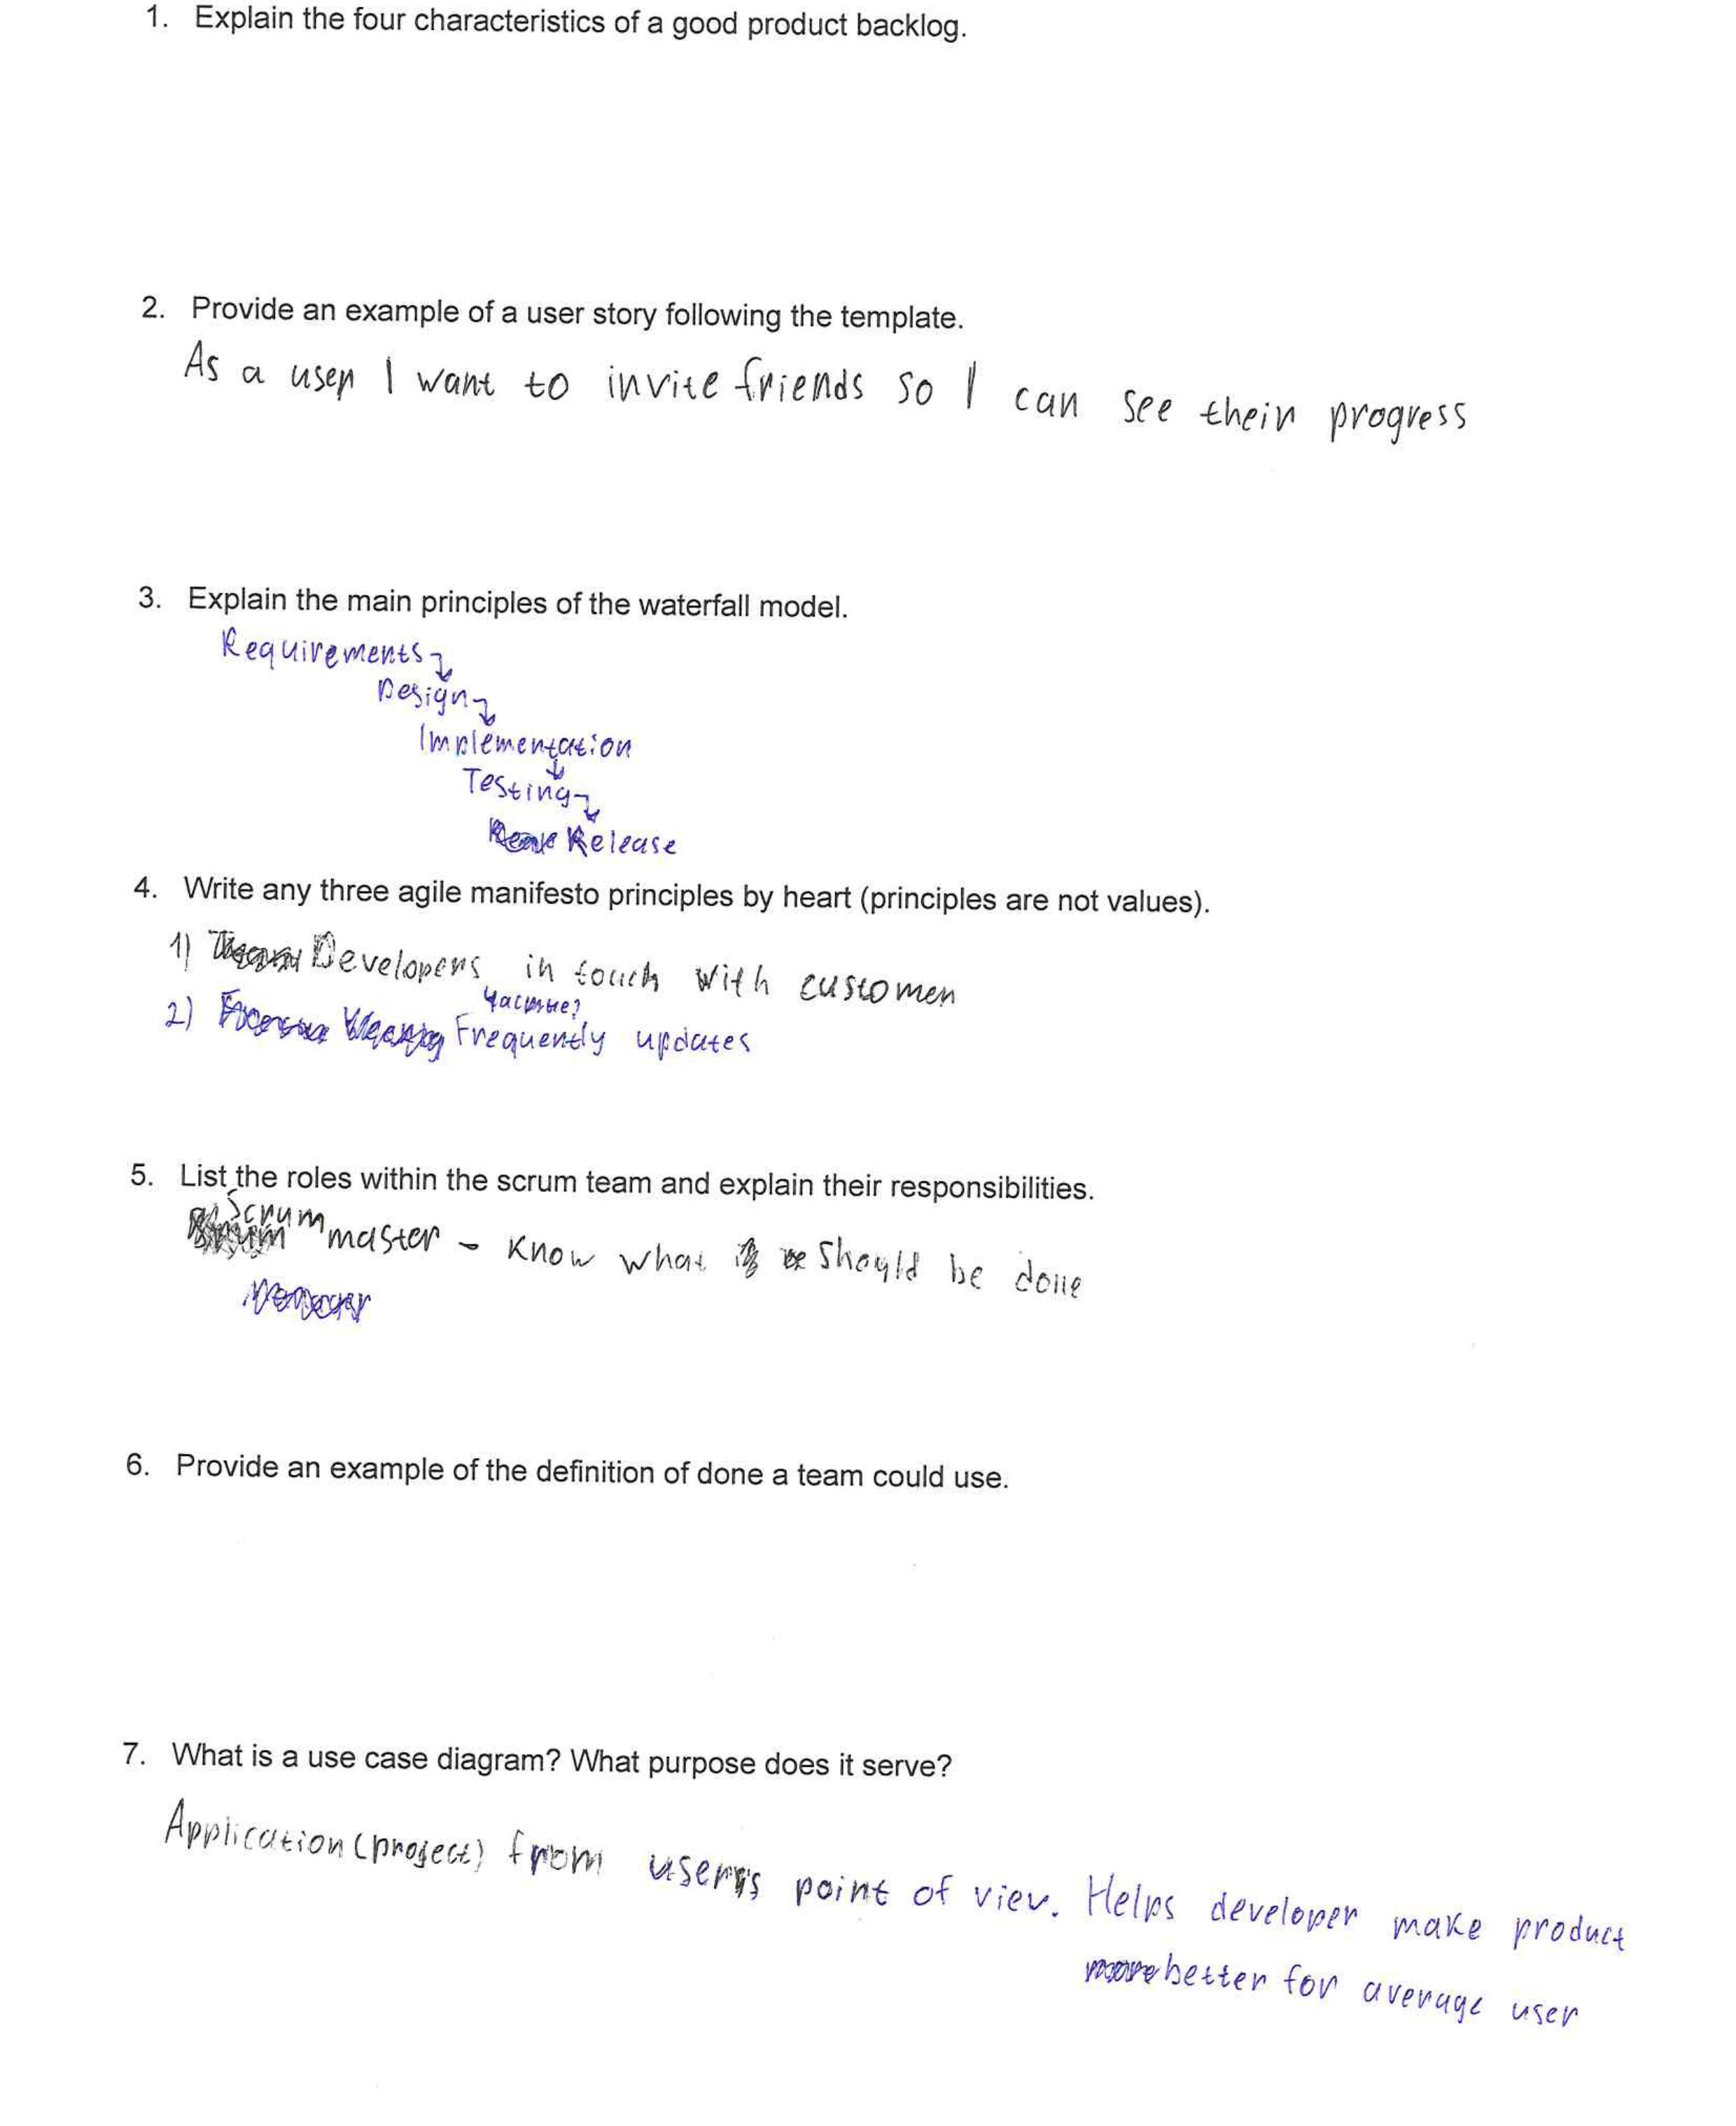 1. Explain the four characteristics of a good product backlog.
2. Provide an example of a user story following the template.
As a user I want to invite friends so I can see their progress
3. Explain the main principles of the waterfall model.
Requirements
Design
Implementation
Testing
Release
4. Write any three agile manifesto principles by heart (principles are not values).
1) Developers in touch with customer
2) Frequently updates
5. List the roles within the scrum team and explain their responsibilities.
Scrum master - Know what should be done
6. Provide an example of the definition of done a team could use.
7. What is a use case diagram? What purpose does it serve?
Application (project) from user's point of view. Helps developer make product
better for average user